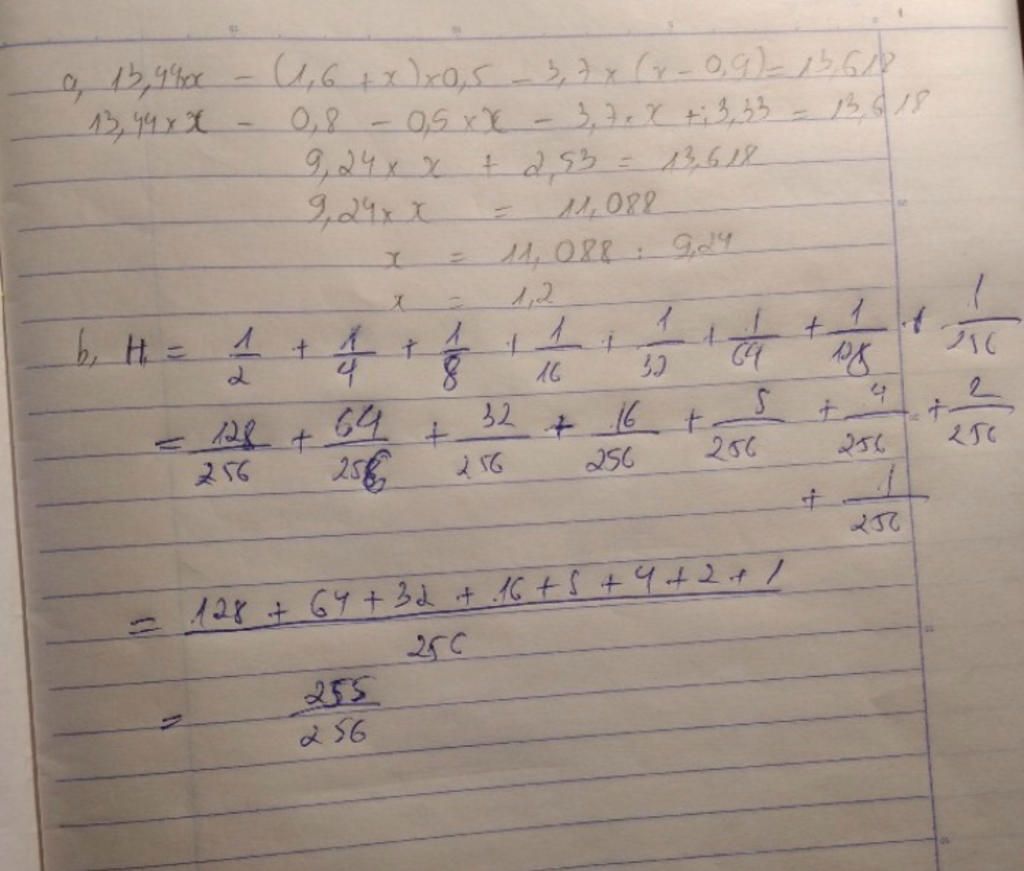 a, 13,44×x - (1,6 + x)×0,5 - 3,7×(x - 0,9) = 13,618
13,44×x - 0,8 - 0,5×x - 3,7×x + 3,33 = 13,618
9,24×x + 2,53 = 13,618
9,24×x = 11,088
x = 11,088 : 9,24
x = 1,2
b, H = 1/2 + 1/4 + 1/8 + 1/16 + 1/32 + 1/64 + 1/128 + 1/256
= 128/256 + 64/256 + 32/256 + 16/256 + 5/256 + 4/256 + 2/256
+ 1/256
= 128 + 64 + 32 + 16 + 5 + 4 + 2 + 1 / 256
= 255/256